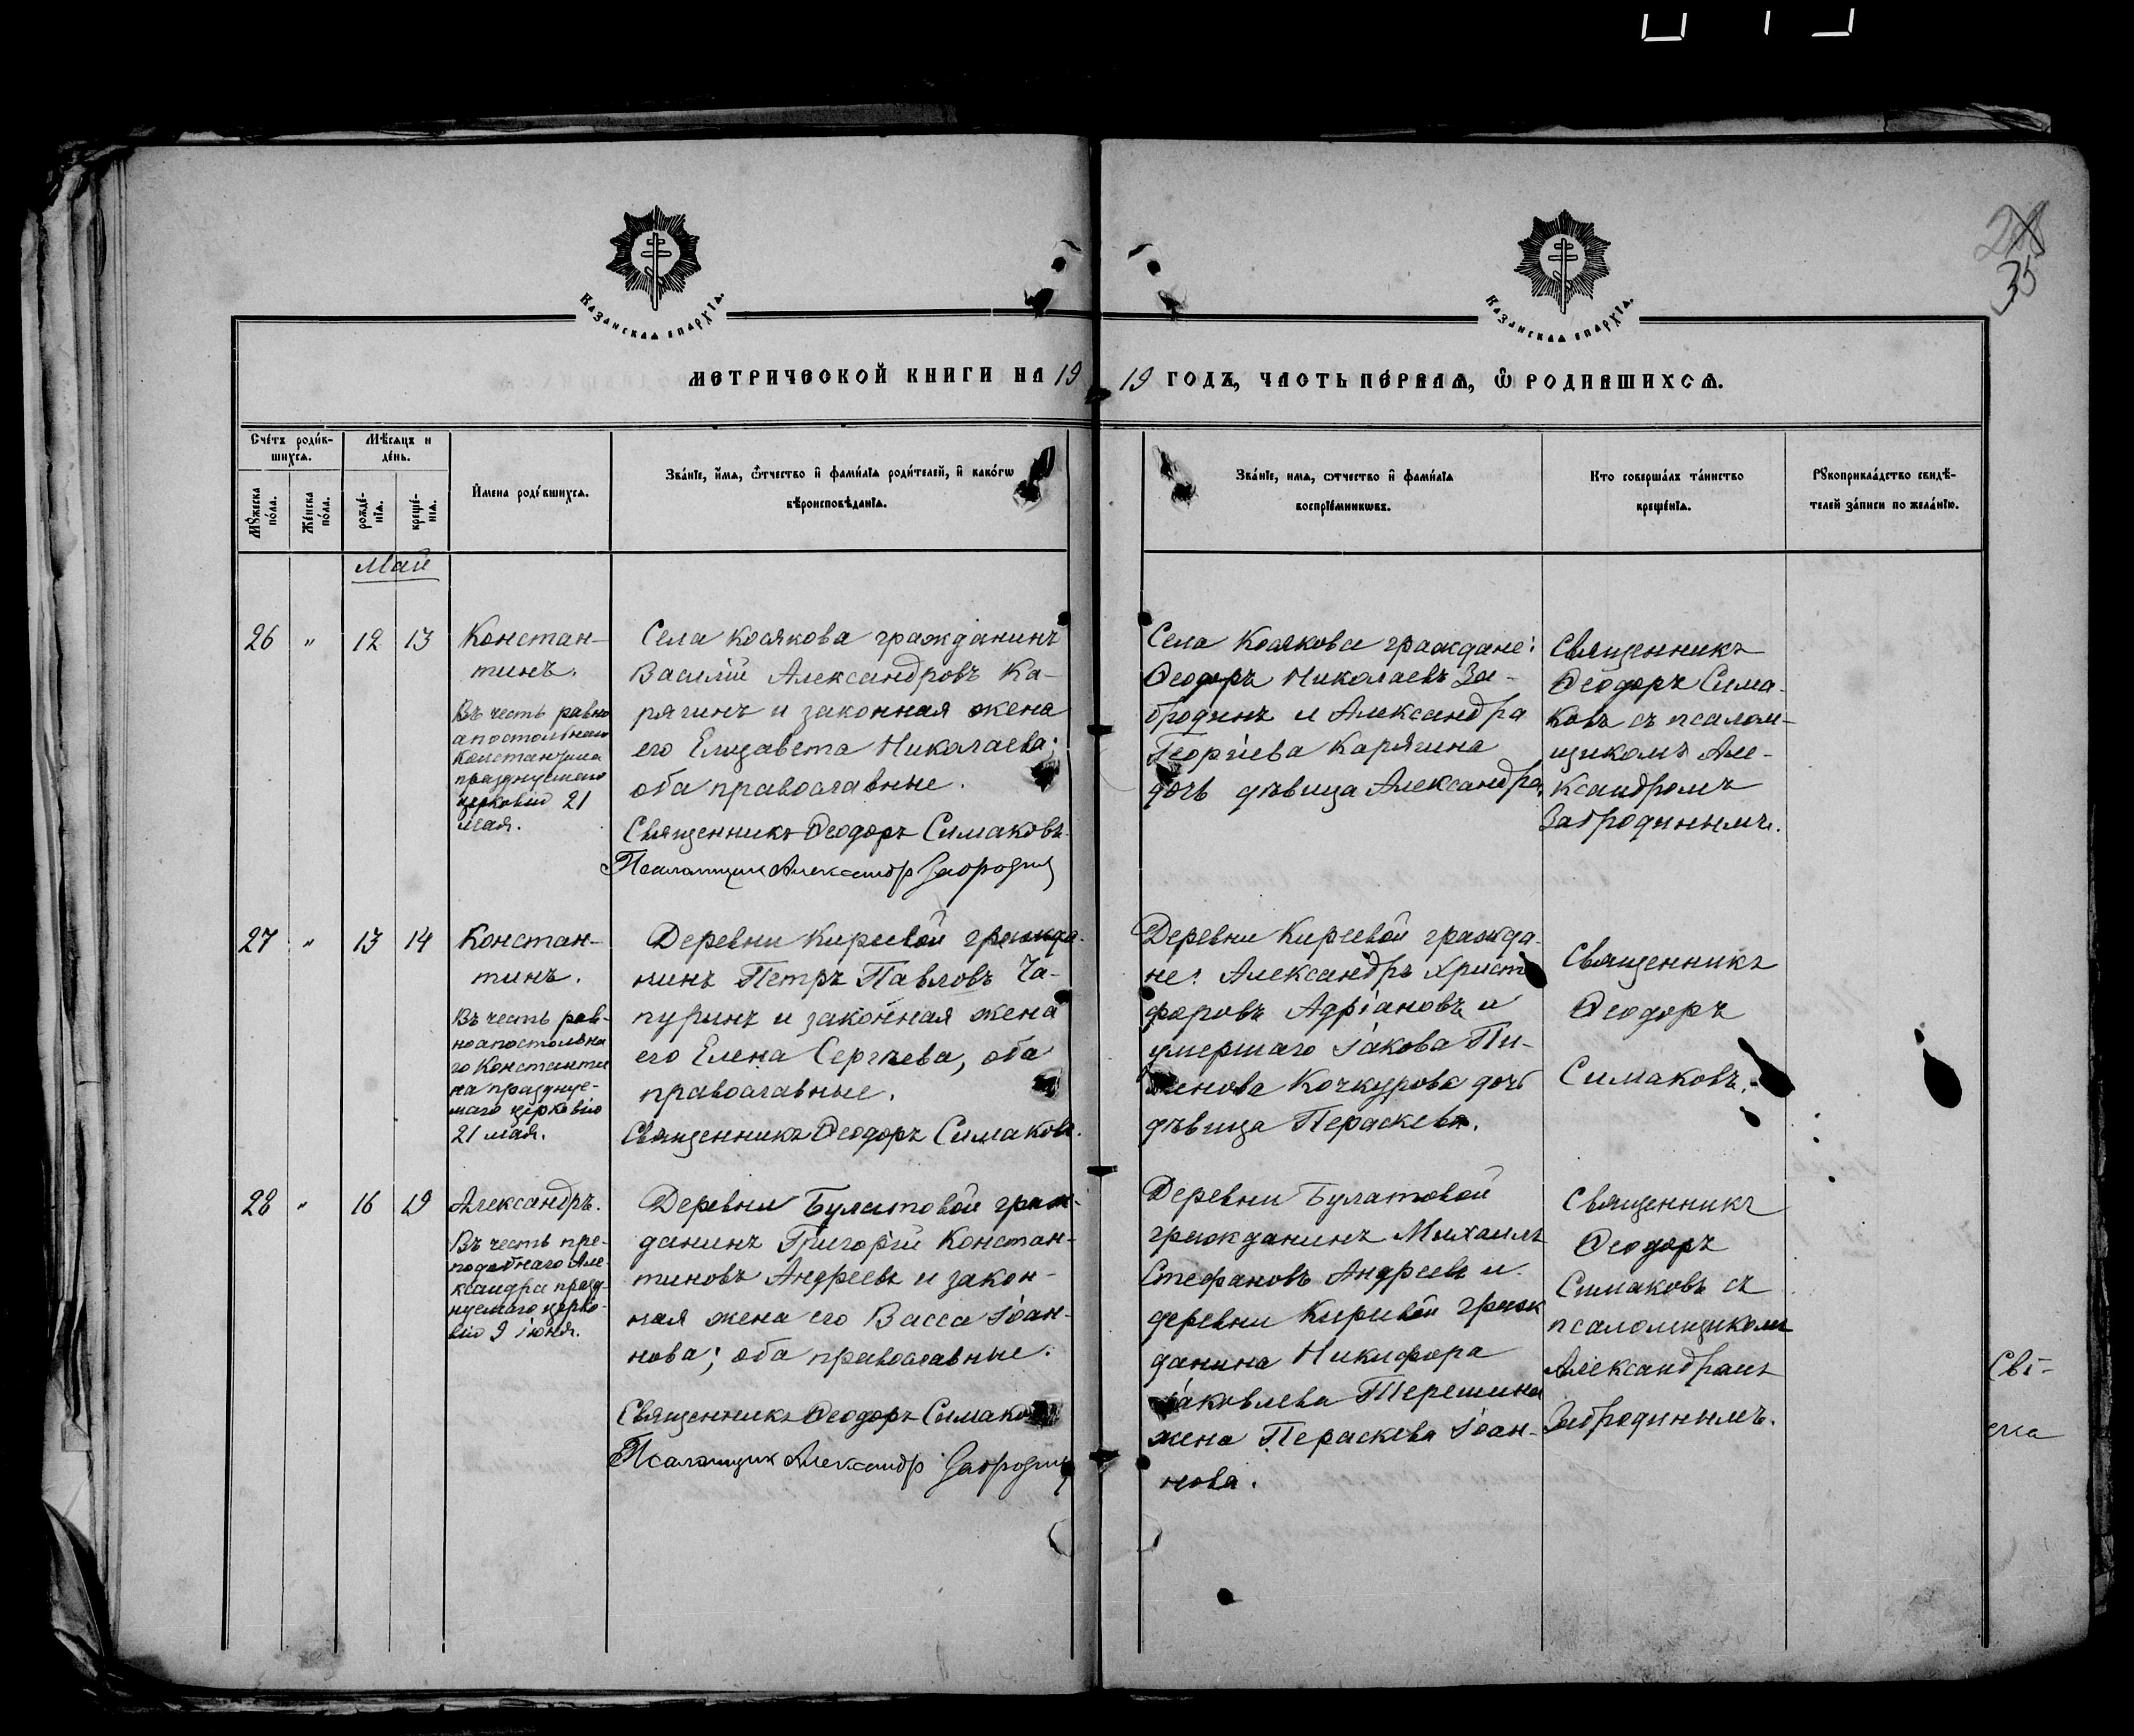 28
35
Казанская епархїѧ.
Казанская епархїѧ.
МЕТРИЧЕСКОЙ КНИГИ НА 1919 ГОДЪ, ЧАСТЬ ПЕ́РВАѦ, Ѿ РОДИВШИХСѦ.
Сче́тъ роди́в-
шихсѧ.
Мꙋ́жеска
по́ла.
Же́нска
по́ла.
Мѣ́сѧцъ и
де́нь.
рожде́-
нїѧ.
креще́-
нїѧ.
Имена роди́вшихсѧ.
Зва́нїе, и́мѧ, ѻ҆́тчество и҆ фами́лїѧ роди́телей, и҆ како́гѡ
вѣроисповѣ́данїѧ.
Зва́нїе, имѧ, ѻтчество и҆ фами́лїѧ
воспрїе́мникѡвъ.
Кто соверша́лъ та́инство
креще́нїѧ.
Рꙋкоприкла́дство свидѣ́-
телей за́писи по жела́нїю.
Май
26 " 12 13
Констан-
тинъ.
Въ честь равно
апостольнаго
Константина
празднуемаго
церковію 21
мая.
Села Косякова гражданинъ
Василій Александровъ Ка-
рягинъ и законная жена
его Елизавета Николаева;
оба православные.
Священникъ Ѳеодоръ Симаковъ.
Псаломщик Александр Забродин
Села Косякова граждане:
Ѳеодоръ Николаевъ За-
бродинъ и Александра
Георгіева Карягина
дочь дѣвица Александра.
Священникъ
Ѳеодоръ Сима-
ковъ съ псалом-
щикомъ Але-
ксандромъ
Забродинымъ.
27 " 13 14
Констан-
тинъ.
Въ честь рав-
ноапостольна
го Константи
на праздну-
маго церковію
21 мая.
Деревни Киреевой гражда-
нинъ Петръ Павловъ Ча-
пуринъ и законная жена
его Елена Сергѣева, оба
православные.
Священникъ Ѳеодоръ Симаковъ.
Деревни Киреевой гражда-
не: Александръ Христо
форовъ Адріановъ и
умершаго Іакова
Кочкурова дочь
дѣвица Параскева.
Священникъ
Ѳеодоръ
Симаковъ.
28 " 16 19
Александръ.
Въ честь пре-
подобнаго Але
ксандра празд-
нуемаго церко-
вію 9 іюня.
Деревни Булатовой граж-
данинъ Григорій Констан-
тиновъ Андреевъ и закон-
ная жена его Васса Іоан-
нова; оба православные.
Священникъ Ѳеодоръ Симаковъ
Псаломщик Александр Забродин
Деревни Булатовой
гражданинъ Михаилъ
Стефановъ Андреевъ и
деревни Киреевой граж
данина Никифора
Іаковлева Терешина
жена Параскева Іоан-
нова.
Священникъ
Ѳеодоръ
Симаковъ съ
псаломщикомъ
Александромъ
Забродинымъ.